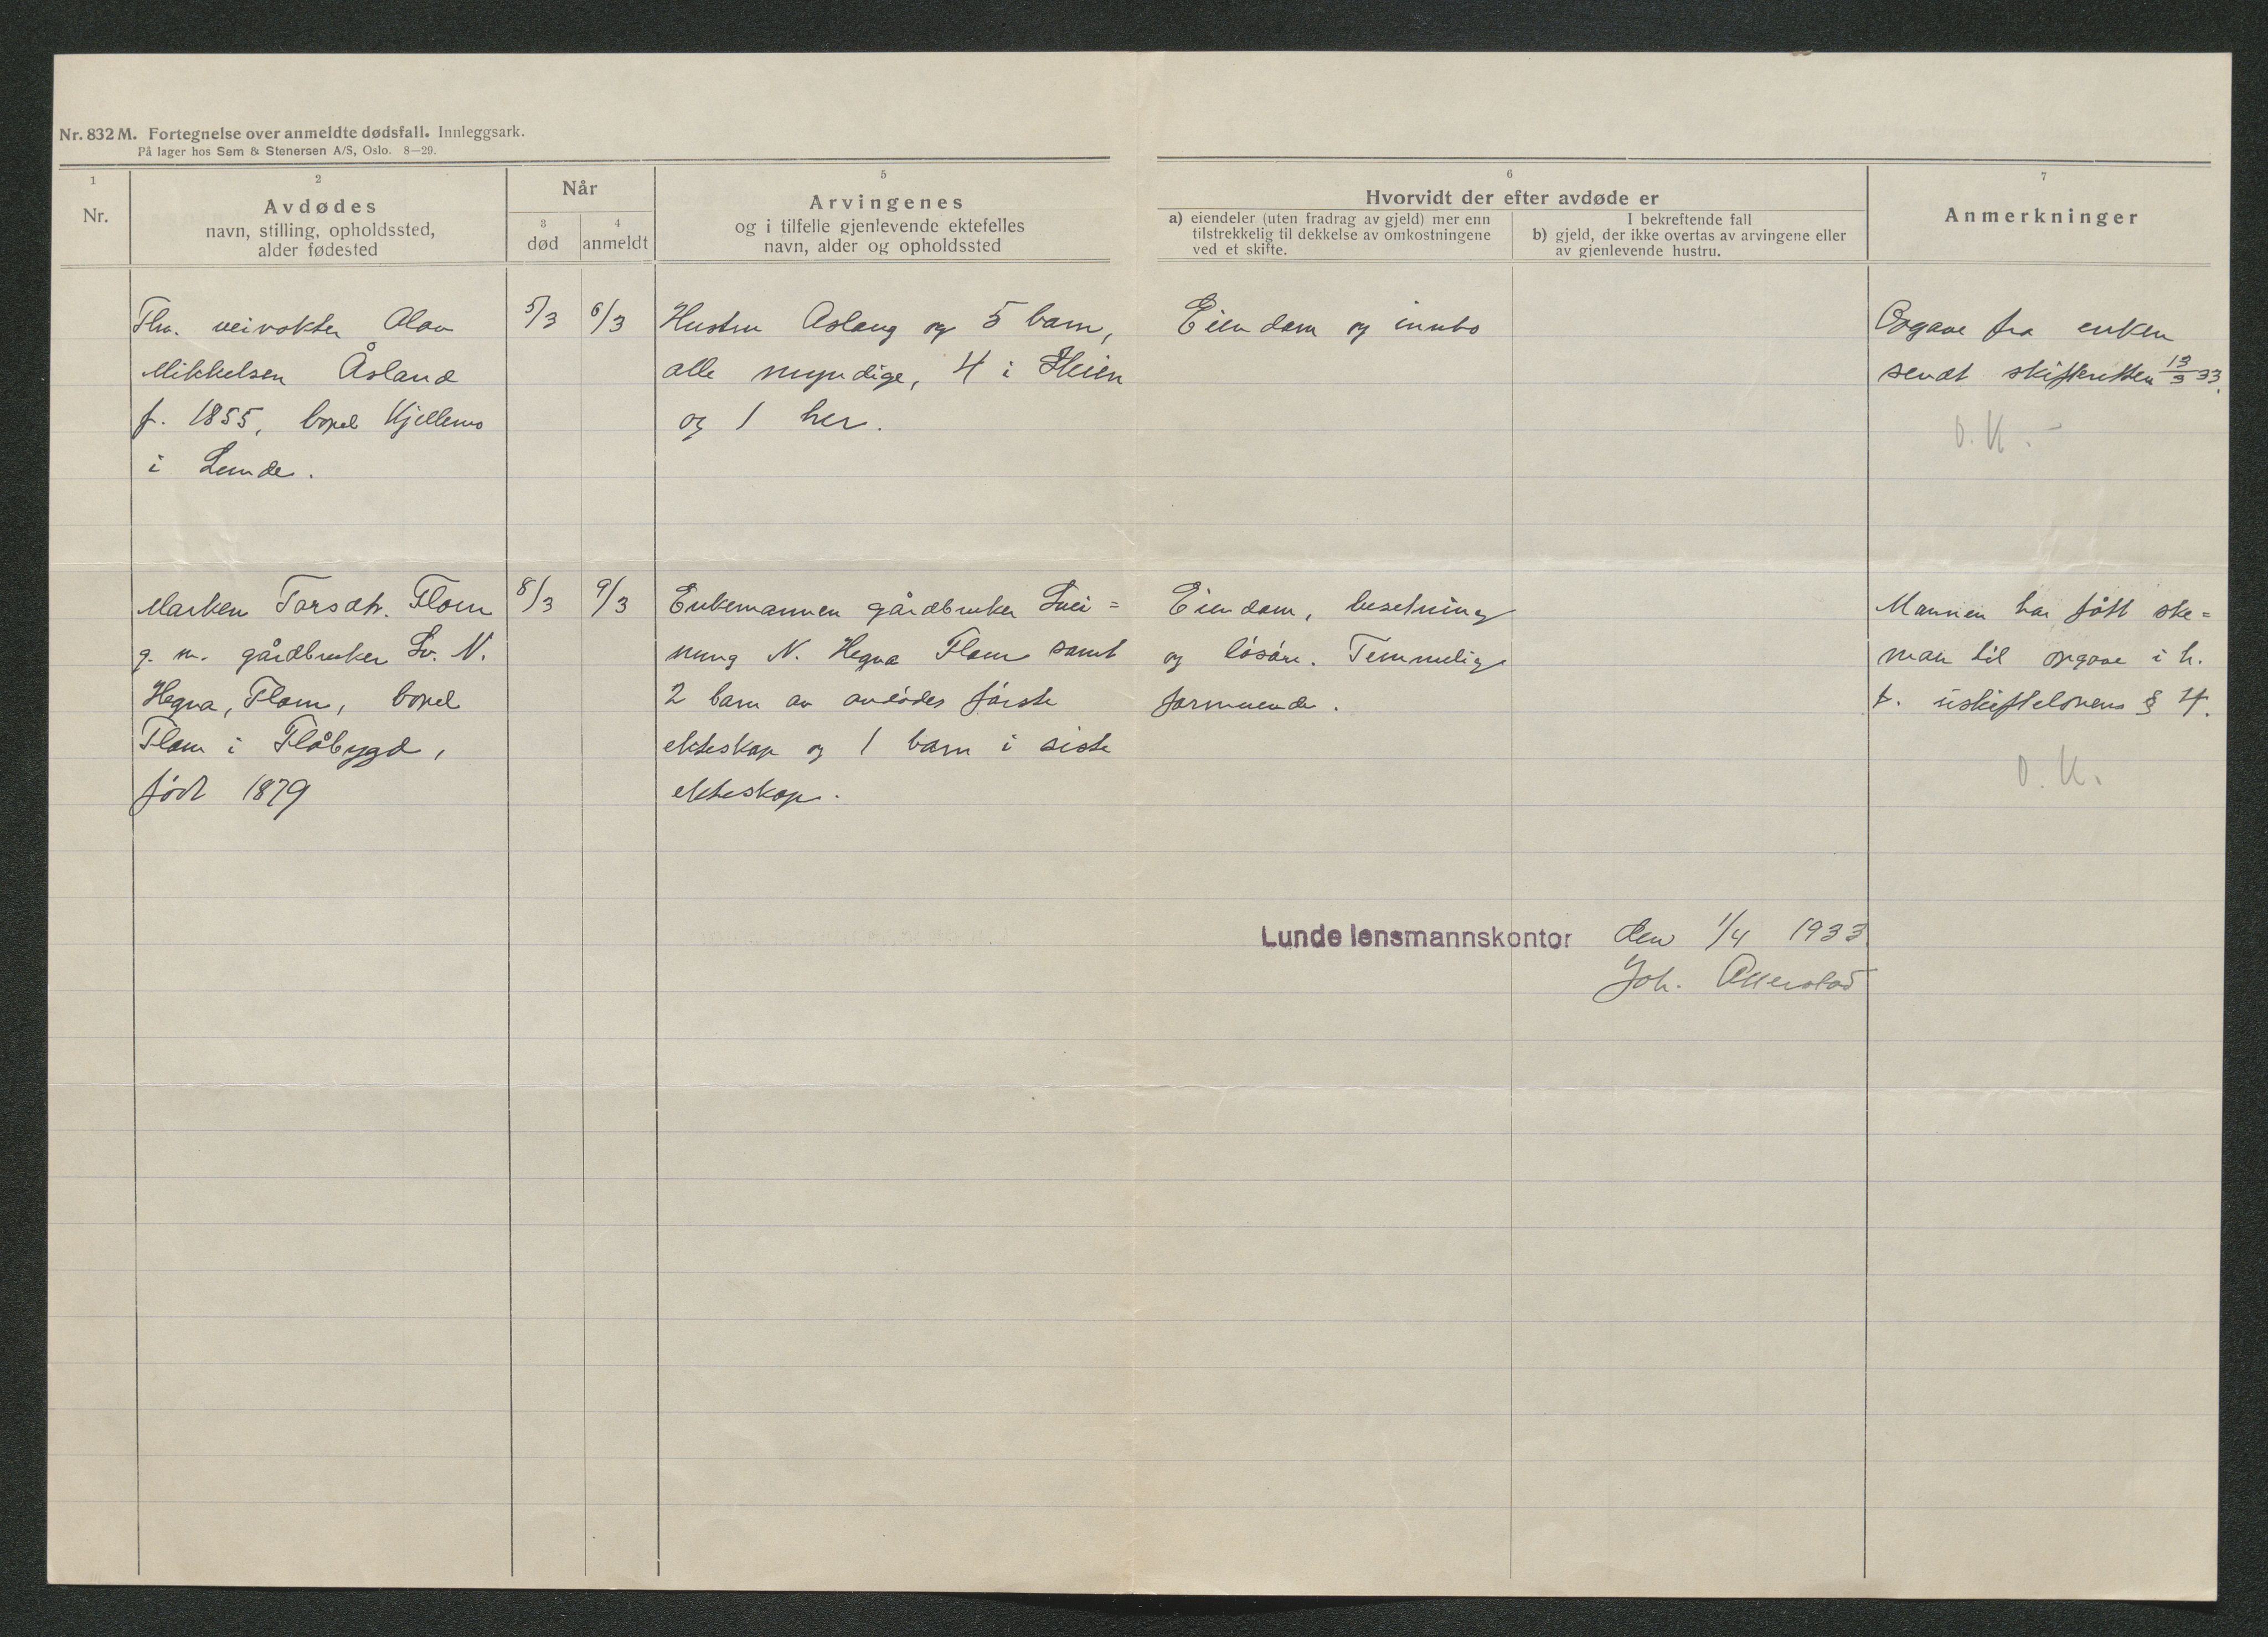 Nr. 832 M. Fortegnelse over anmeldte dødsfall. Innleggsark.
På lager hos Sem & Stenersen A/S, Oslo. 8—29.
1
Nr.
2
Avdødes
navn, stilling, opholdssted,
alder fødested
Når
3
død
4
anmeldt
5
Arvingenes
og i tilfelle gjenlevende ektefelles
navn, alder og opholdssted
6
Hvorvidt der efter avdøde er
a) eiendeler (uten fradrag av gjeld) mer enn
tilstrekkelig til dekkelse av omkostningene
ved et skifte.
I bekreftende fall
b) gjeld, der ikke overtas av arvingene eller
av gjenlevende hustru.
7
Anmerkninger
Fhv. veivokter Olav
Mikkelsen Åsland
f. 1855, bopel Kjellemo
i Lunde.
5/3
6/3
Hustru Aslaug og 5 barn,
alle myndige, 4 i Heien
og 1 her.
Eiendom og innbo
Opgave fra enken
sendt skifteretten 13/3 33.
O.K. –
Marken Torsdtr. Flom
g. m. gårdbruker Sv. N.
Hegna, Flom, bopel
Flom i Flåbygd,
født 1879
8/3
9/3
Enkemannen gårdbruker Svei=
nung N. Hegna Flom samt
2 barn av avdødes første
ekteskap og 1 barn i siste
ekteskap.
Eiendom, besetning
og løsøre. Temmelig
formuende.
Mannen har fått ske=
ma til opgave i h.
t. uskiftelovens § 4.
O.K.
Lunde lensmannskontor den 1/4 1933
Joh. Akerstad